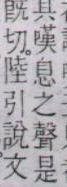 其嘆息之聲是
既切。陸引說文